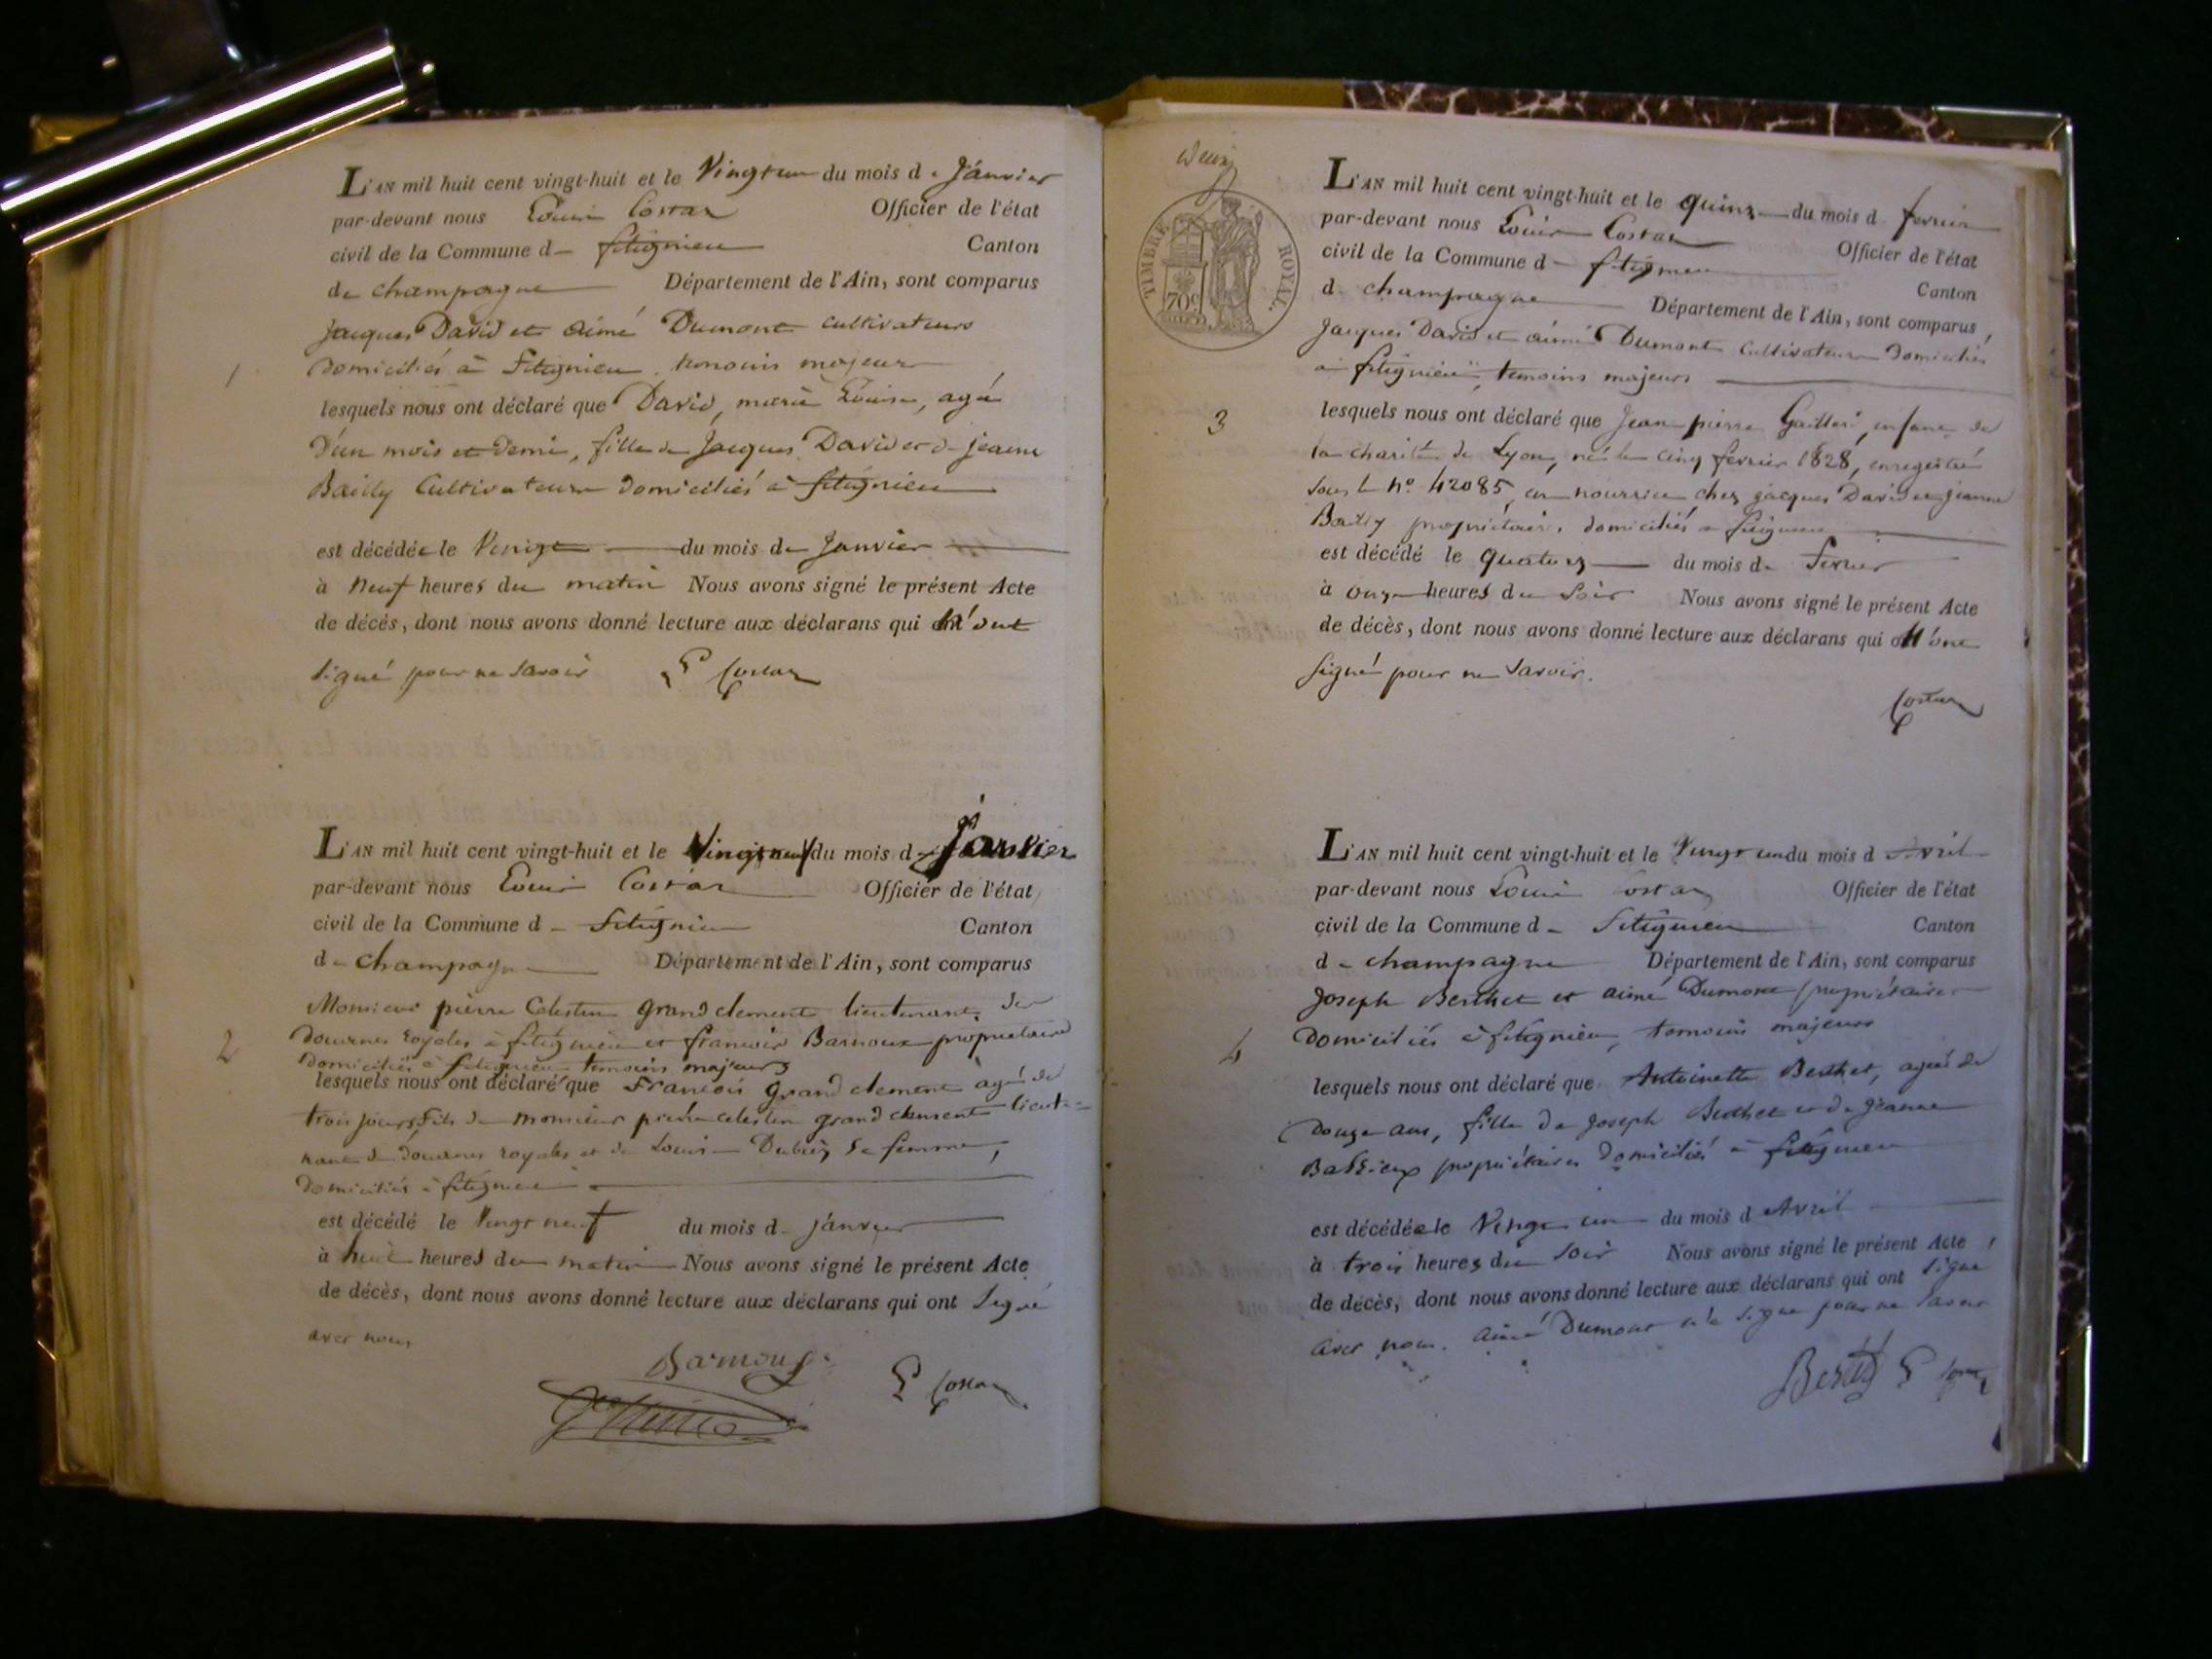 L'AN mil huit cent vingt-huit et le Vingt un du mois de Janvier
par-devant nous Louis Costaz Officier de l'état
civil de la Commune de fitignieu Canton
de champagne Département de l'Ain, sont comparus
Jacques David et aimé Dumont cultivateurs
1
domiciliés à Fitignieu temoins majeurs
lesquels nous ont déclaré que David, marie Louise, agée
d'un mois et demi, fille de Jacques David et de jeanne
Bailly Cultivateurs domiciliés à fitignieu
est décédée le Vingt du mois de Janvier
à neuf heures du matin Nous avons signé le présent Acte
de décès, dont nous avons donné lecture aux déclarans qui n'ont
signé pour ne savoir L Costaz
L'AN mil huit cent vingt-huit et le Vingt neuf du mois de Janvier
par-devant nous Louis Costaz Officier de l'état
civil de la Commune de fitignieu Canton
de champagne Département de l'Ain, sont comparus
Monsieur pierre Celestin grand clement lieutenant des
2
douanes royales à fitignieu et francois Barnoux propriétaire
domiciliés à fitignieu temoins majeurs
lesquels nous ont déclaré que Francois grand clement agé de
trois jours, fils de monsieur pierre celestin grand clement lieute=
nant de douanes royales et de Louise sa femme,
domiciliés à fitignieu
est décédé le Vingt neuf du mois de janvier
à huit heures du matin Nous avons signé le présent Acte
de décès, dont nous avons donné lecture aux déclarans qui ont signé
avec nous
Barnoux
L Costaz
deux
TIMBRE ROYAL.
70c
L'AN mil huit cent vingt-huit et le quinze du mois de fevrier
par-devant nous Louis Costaz Officier de l'état
civil de la Commune de fitignieu Canton
de champagne Département de l'Ain, sont comparus
Jacques David et aimé Dumont Cultivateurs domiciliés
à fitignieu, temoins majeurs
3
lesquels nous ont déclaré que Jean pierre enfant de
la charité de Lyon, né le cinq fevrier 1828, enregistré
sous le no. 42085 en nourrice chez jacques David et jeanne
Bailly propriétaires domiciliés à fitignieu
est décédé le quatorze du mois de fevrier
à onze heures du soir Nous avons signé le présent Acte
de décès, dont nous avons donné lecture aux déclarans qui n'ont
signé pour ne savoir.
Costaz
L'AN mil huit cent vingt-huit et le Vingt un du mois d'avril
par-devant nous Louis Costaz Officier de l'état
civil de la Commune de fitignieu Canton
de champagne Département de l'Ain, sont comparus
Joseph Berthet et aimé Dumont propriétaires
4
domiciliés à fitignieu, temoins majeurs
lesquels nous ont déclaré que Antoinette Berthet, agée de
douze ans, fille de Joseph Berthet et de jeanne
propriétaires domiciliés à fitignieu
est décédée le Vingt un du mois d'avril
à trois heures du soir Nous avons signé le présent Acte
de décès, dont nous avons donné lecture aux déclarans qui ont signé
avec nous. aimé Dumont n'a signé pour ne savoir
L Costaz